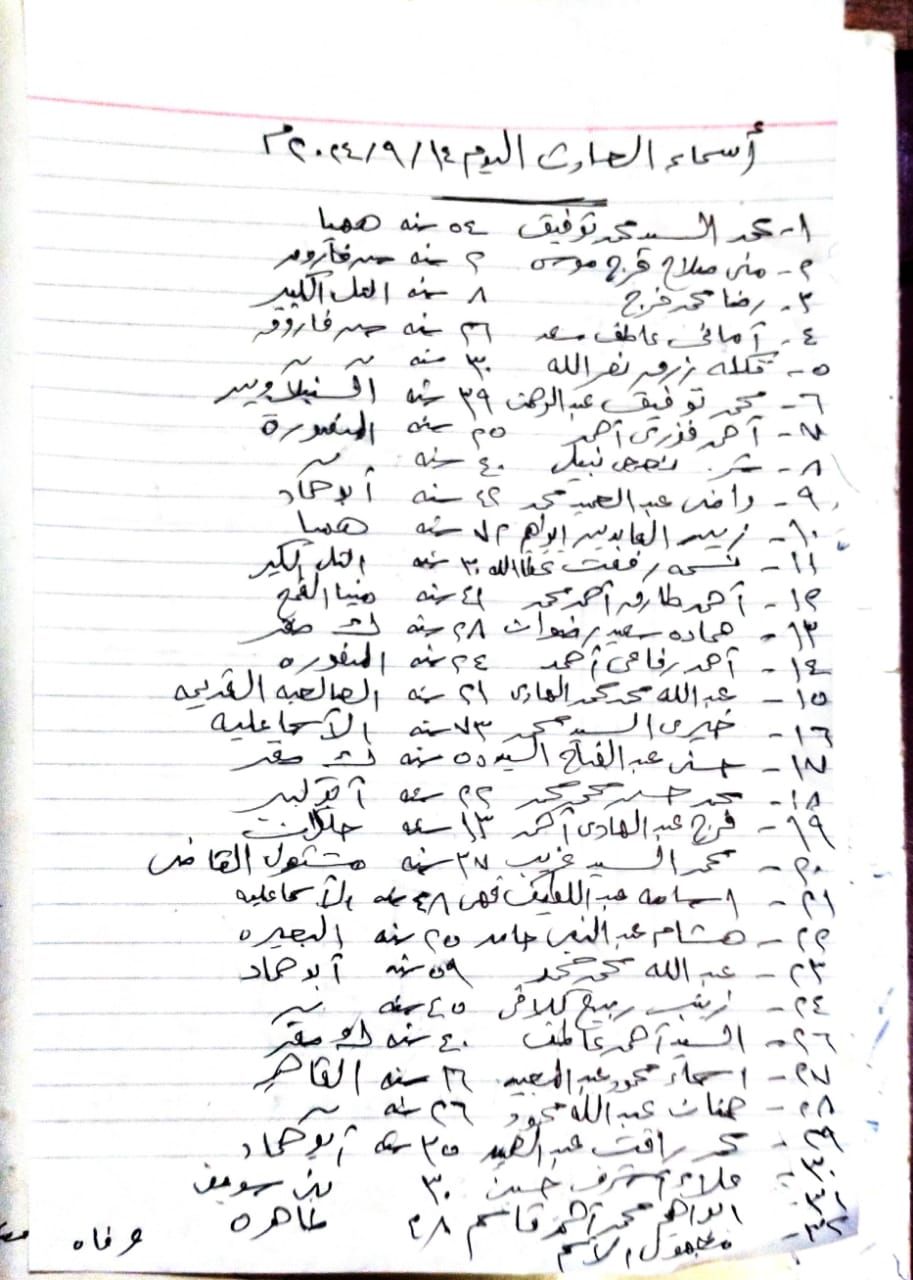 أسماء الحادث اليوم ١٤/٩/٢٠٢٤م
١- محمد السيد محمد توفيق ٥٤ سنه ههيا
٢- منى صلاح فرج موسى ٢ سنه حسن
٣- رضا محمد فرج ٨ سنه التل الكبير
٤- أمانى عاطف سعد ٣٦ سنه فاروق
٥- رزق نصر الله ٣٠ سنه " "
٦- محمد توفيق عبد الرحمن ٣٩ سنه السنبلاوين
٧- أحمد فوزى أحمد ٢٥ سنه المنصورة
٨- نبيل ٤٠ سنه "
٩- راضى عبد الحميد محمد ٤٢ سنه أبو حماد
١٠- زين العابدين ابراهيم ٧٢ سنه ههيا
١١- نسمه رفعت عطا الله ٣٠ سنه التل الكبير
١٢- أحمد طارق أحمد محمد ٤١ سنه منيا القمح
١٣- حماده سعيد رضوان ٢٨ سنه ك صقر
١٤- أحمد رفاعى أحمد ٢٤ سنه المنصوره
١٥- عبد الله محمد محمد الهادى ٢١ سنه الصالحيه القديمه
١٦- خيرى السيد محمد ٧٣ سنه الأسماعليه
١٧- حسنى عبد الفتاح السيد ٥٥ سنه ك صقر
١٨- محمد حسن محمد ٢٢ سنه
١٩- فرج عبد الهادى أحمد ١٣ سنه
٢٠- محمد السيد غريب ٢٧ سنه مشتول القاضى
٢١- اسامه عبد اللطيف فهمى ٤٨ سنه الأسماعليه
٢٢- هشام عبد النبى حامد ٢٥ سنه البحيره
٢٣- عبد الله محمد محمد ٥٩ سنه أبو حماد
٢٤- زينب ربيع ٤٥ سنه "
٢٦- السيد أحمد عاطف ٤٠ سنه ك صقر
٢٧- اسماء محمود عبد المجيد ٣٦ سنه القاهره
٢٨- حنان عبد الله محمود ٢٦ سنه "
٢٩- محمد رافت عبد الحميد ٣٥ سنه أبو حماد
٣٠- علاء اشرف حسين ٣٠ بنى سويف
٣١- ابراهيم محمد أحمد قاسم ٤٨ طاهره
٣٢- مجهول الأسم وفاه